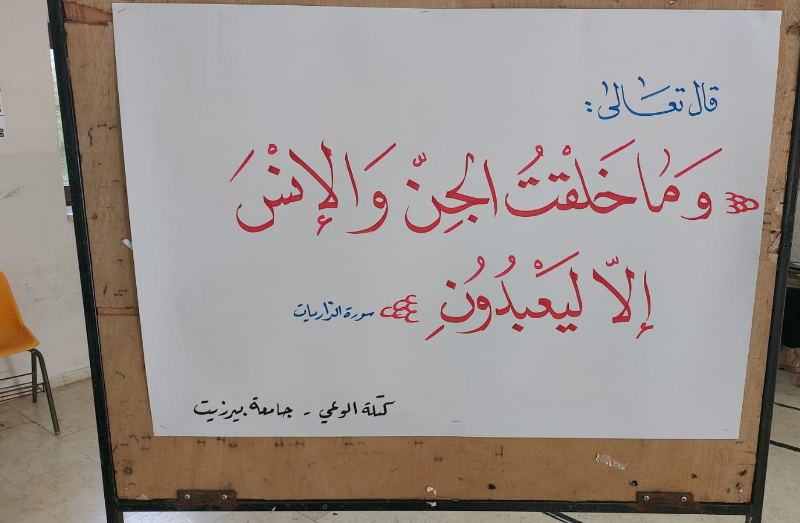 قال تعالى:
﴿وَمَا خَلَقْتُ الجِنّ وَالإِنْسَ
إلّا لِيَعْبُدُونِ﴾ سورة الذاريات
كتلة الوعي - جامعة بيرزيت